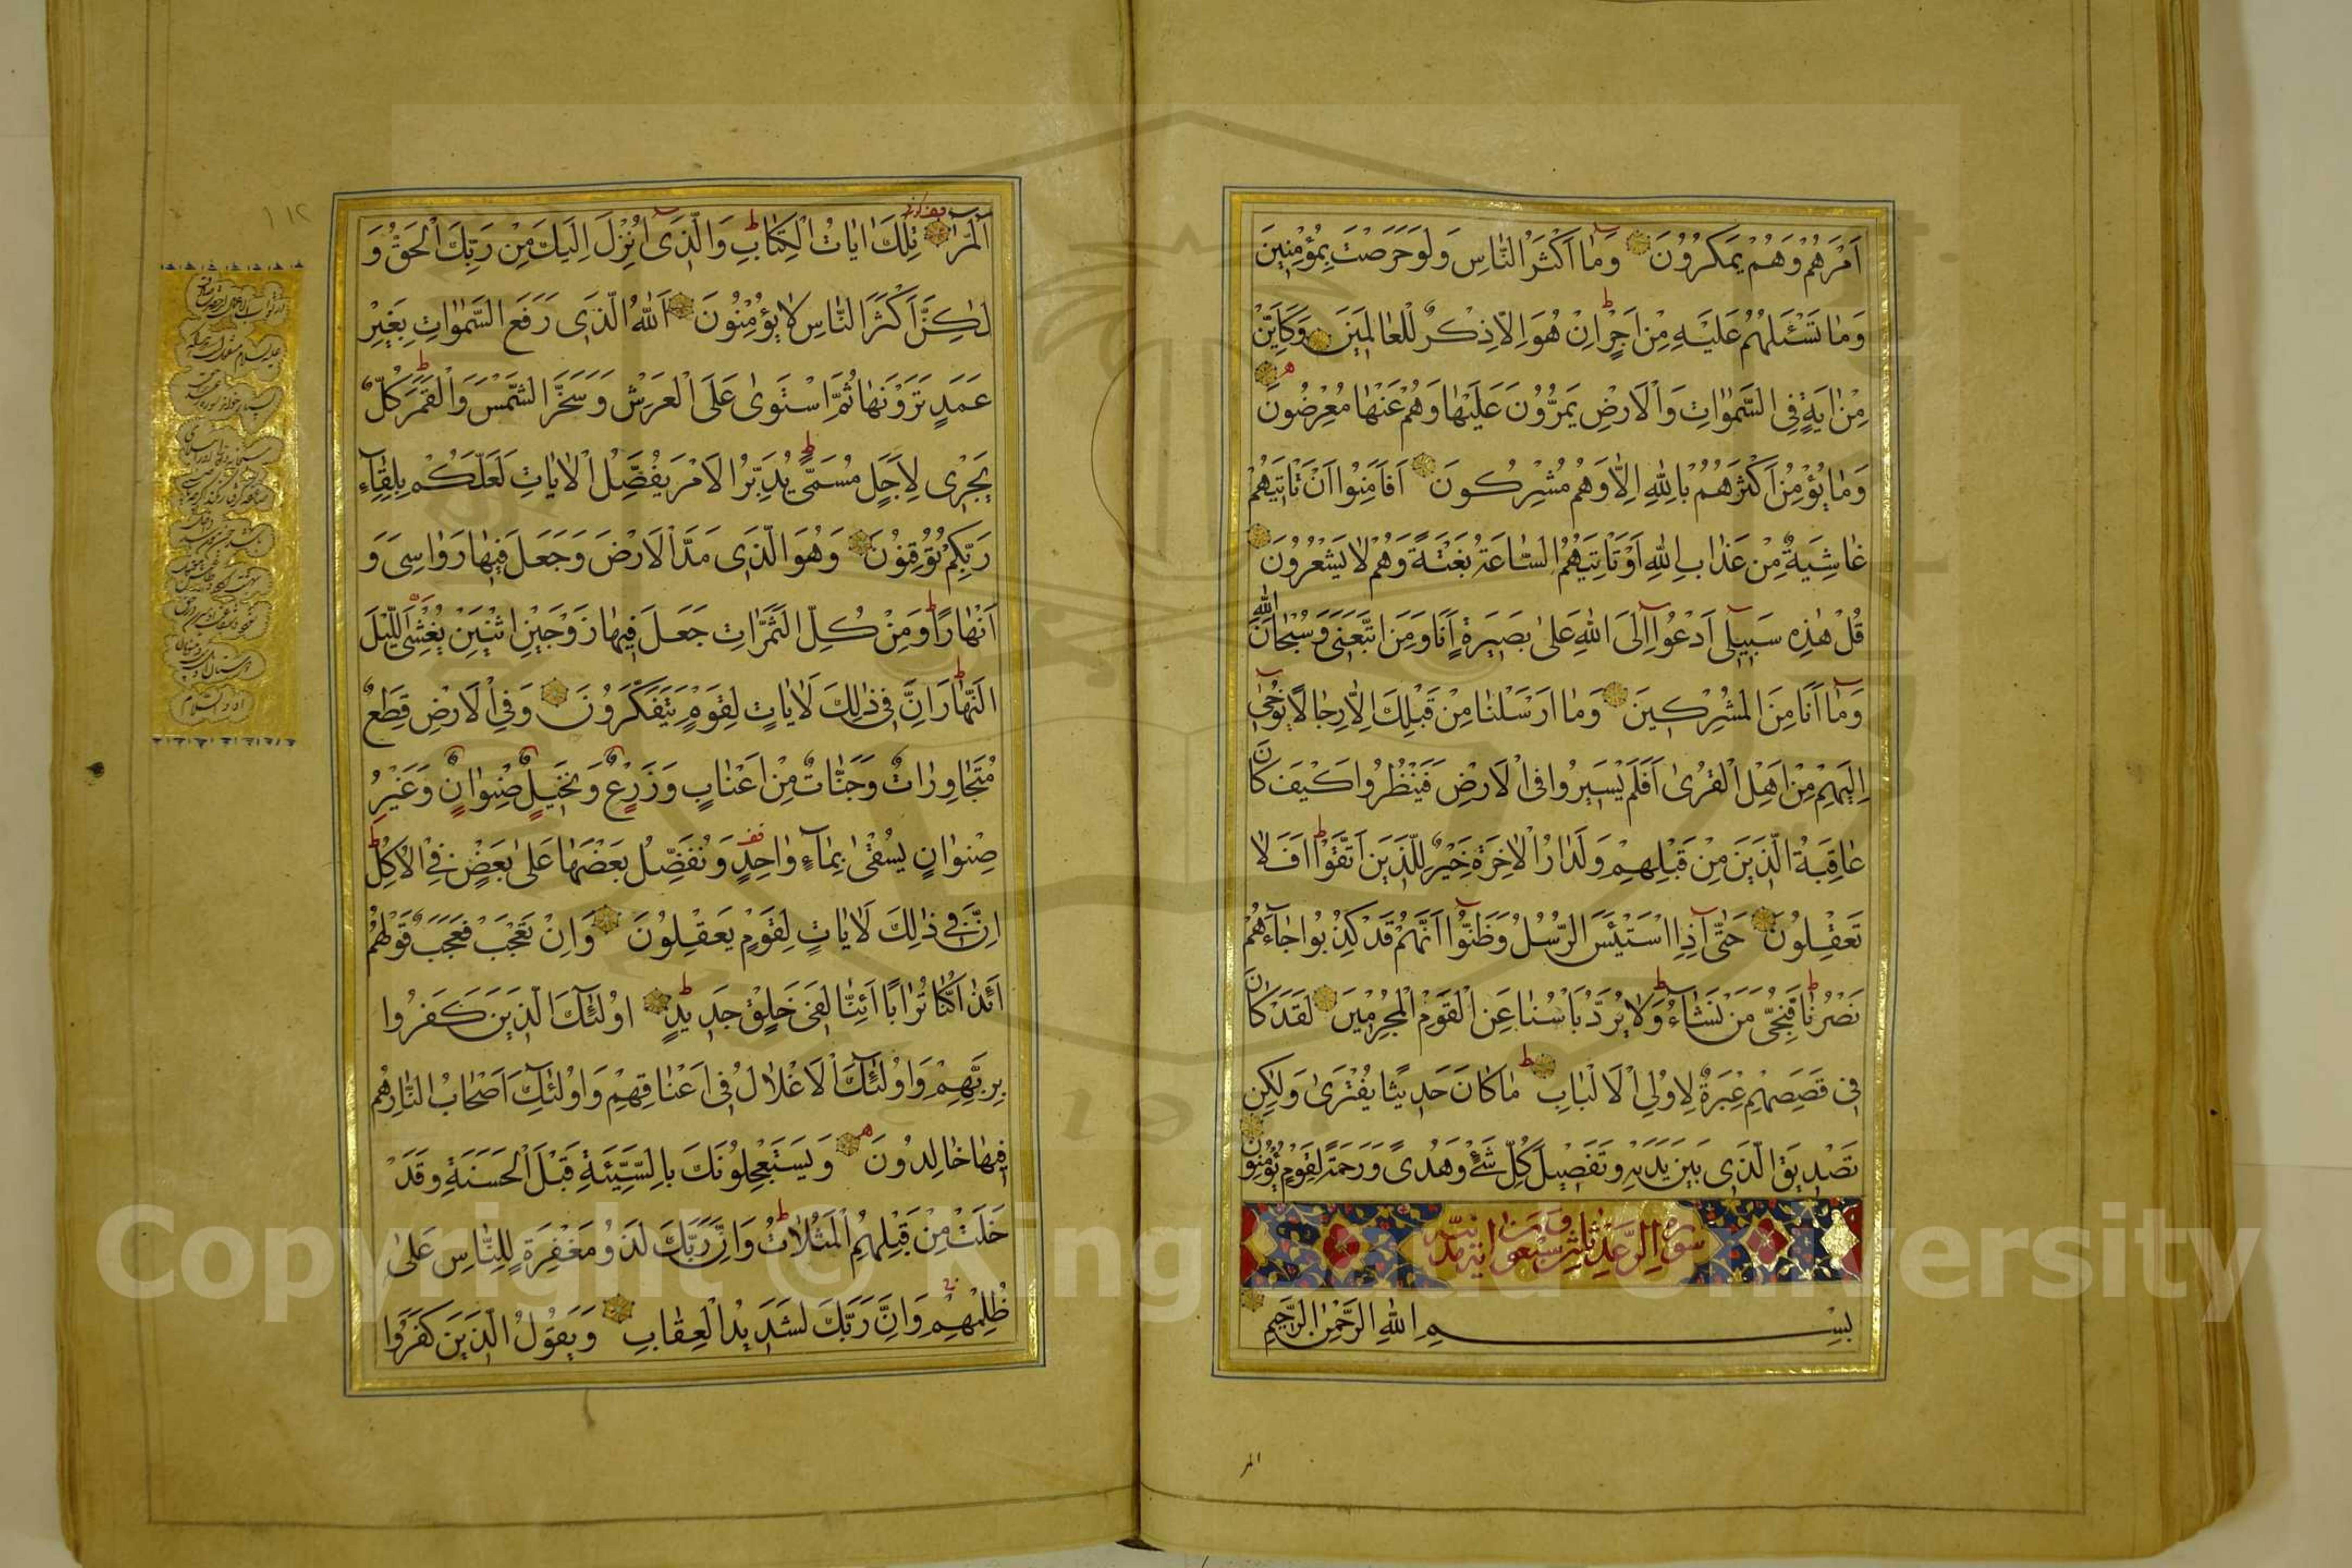 اَمْرَهُمْ وَهُمْ يَمْكُرُونَ وَمٰا اَكْثَرُ النّٰاسِ وَلَوْ حَرَصْتَ بِمُؤْمِنِينَ
وَمٰا تَسْئَلُهُمْ عَلَيْهِ مِنْ اَجْرٍ اِنْ هُوَ اِلّٰا ذِكْرٌ لِلْعٰالَمِينَ وَكَاَيِّنْ
مِنْ اٰيَةٍ فِي السَّمٰوٰاتِ وَالْاَرْضِ يَمُرُّونَ عَلَيْهٰا وَهُمْ عَنْهٰا مُعْرِضُونَ
وَمٰا يُؤْمِنُ اَكْثَرُهُمْ بِاللّٰهِ اِلّٰا وَهُمْ مُشْرِكُونَ اَفَاَمِنُوا اَنْ تَاْتِيَهُمْ
غٰاشِيَةٌ مِنْ عَذٰابِ اللّٰهِ اَوْ تَاْتِيَهُمُ السّٰاعَةُ بَغْتَةً وَهُمْ لٰا يَشْعُرُونَ
قُلْ هٰذِهِ سَبِيلِي اَدْعُوا اِلَى اللّٰهِ عَلىٰ بَصِيرَةٍ اَنَا وَمَنِ اتَّبَعَنِي وَسُبْحٰانَ اللّٰهِ
وَمٰا اَنَا مِنَ الْمُشْرِكِينَ وَمٰا اَرْسَلْنٰا مِنْ قَبْلِكَ اِلّٰا رِجٰالًا يُوحٰى
اِلَيْهِمْ مِنْ اَهْلِ الْقُرىٰ اَفَلَمْ يَسِيرُوا فِي الْاَرْضِ فَيَنْظُرُوا كَيْفَ كٰانَ
عٰاقِبَةُ الَّذِينَ مِنْ قَبْلِهِمْ وَلَدٰارُ الْاٰخِرَةِ خَيْرٌ لِلَّذِينَ اتَّقَوْا اَفَلٰا
تَعْقِلُونَ حَتّٰى اِذَا اسْتَيْئَسَ الرُّسُلُ وَظَنُّوا اَنَّهُمْ قَدْ كُذِبُوا جٰاءَهُمْ
نَصْرُنٰا فَنُجِّيَ مَنْ نَشٰاءُ وَلٰا يُرَدُّ بَاْسُنٰا عَنِ الْقَوْمِ الْمُجْرِمِينَ لَقَدْ كٰانَ
فِي قَصَصِهِمْ عِبْرَةٌ لِاُولِي الْاَلْبٰابِ مٰا كٰانَ حَدِيثًا يُفْتَرىٰ وَلٰكِنْ
تَصْدِيقَ الَّذِي بَيْنَ يَدَيْهِ وَتَفْصِيلَ كُلِّ شَيْءٍ وَهُدىً وَرَحْمَةً لِقَوْمٍ يُؤْمِنُونَ
سورة الرعد
بِسْمِ اللّٰهِ الرَّحْمٰنِ الرَّحِيمِ
المر
الٓمّٓرٰ تِلْكَ اٰيٰاتُ الْكِتٰابِ وَالَّذِي اُنْزِلَ اِلَيْكَ مِنْ رَبِّكَ الْحَقُّ وَ
لٰكِنَّ اَكْثَرَ النّٰاسِ لٰا يُؤْمِنُونَ اَللّٰهُ الَّذِي رَفَعَ السَّمٰوٰاتِ بِغَيْرِ
عَمَدٍ تَرَوْنَهٰا ثُمَّ اسْتَوىٰ عَلَى الْعَرْشِ وَسَخَّرَ الشَّمْسَ وَالْقَمَرَ كُلٌّ
يَجْرِي لِاَجَلٍ مُسَمًّى يُدَبِّرُ الْاَمْرَ يُفَصِّلُ الْاٰيٰاتِ لَعَلَّكُمْ بِلِقٰاءِ
رَبِّكُمْ تُوقِنُونَ وَهُوَ الَّذِي مَدَّ الْاَرْضَ وَجَعَلَ فِيهٰا رَوٰاسِيَ وَ
اَنْهٰارًا وَمِنْ كُلِّ الثَّمَرٰاتِ جَعَلَ فِيهٰا زَوْجَيْنِ اثْنَيْنِ يُغْشِي اللَّيْلَ
النَّهٰارَ اِنَّ فِي ذٰلِكَ لَاٰيٰاتٍ لِقَوْمٍ يَتَفَكَّرُونَ وَفِي الْاَرْضِ قِطَعٌ
مُتَجٰاوِرٰاتٌ وَجَنّٰاتٌ مِنْ اَعْنٰابٍ وَزَرْعٌ وَنَخِيلٌ صِنْوٰانٌ وَغَيْرُ
صِنْوٰانٍ يُسْقىٰ بِمٰاءٍ وٰاحِدٍ وَنُفَضِّلُ بَعْضَهٰا عَلىٰ بَعْضٍ فِي الْاُكُلِ
اِنَّ فِي ذٰلِكَ لَاٰيٰاتٍ لِقَوْمٍ يَعْقِلُونَ وَاِنْ تَعْجَبْ فَعَجَبٌ قَوْلُهُمْ
اَئِذٰا كُنّٰا تُرٰابًا اَئِنّٰا لَفِي خَلْقٍ جَدِيدٍ اُولٰئِكَ الَّذِينَ كَفَرُوا
بِرَبِّهِمْ وَاُولٰئِكَ الْاَغْلٰالُ فِي اَعْنٰاقِهِمْ وَاُولٰئِكَ اَصْحٰابُ النّٰارِ هُمْ
فِيهٰا خٰالِدُونَ وَيَسْتَعْجِلُونَكَ بِالسَّيِّئَةِ قَبْلَ الْحَسَنَةِ وَقَدْ
خَلَتْ مِنْ قَبْلِهِمُ الْمَثُلٰاتُ وَاِنَّ رَبَّكَ لَذُو مَغْفِرَةٍ لِلنّٰاسِ عَلىٰ
ظُلْمِهِمْ وَاِنَّ رَبَّكَ لَشَدِيدُ الْعِقٰابِ وَيَقُولُ الَّذِينَ كَفَرُوا
١١٢
Copyright © King Saud University